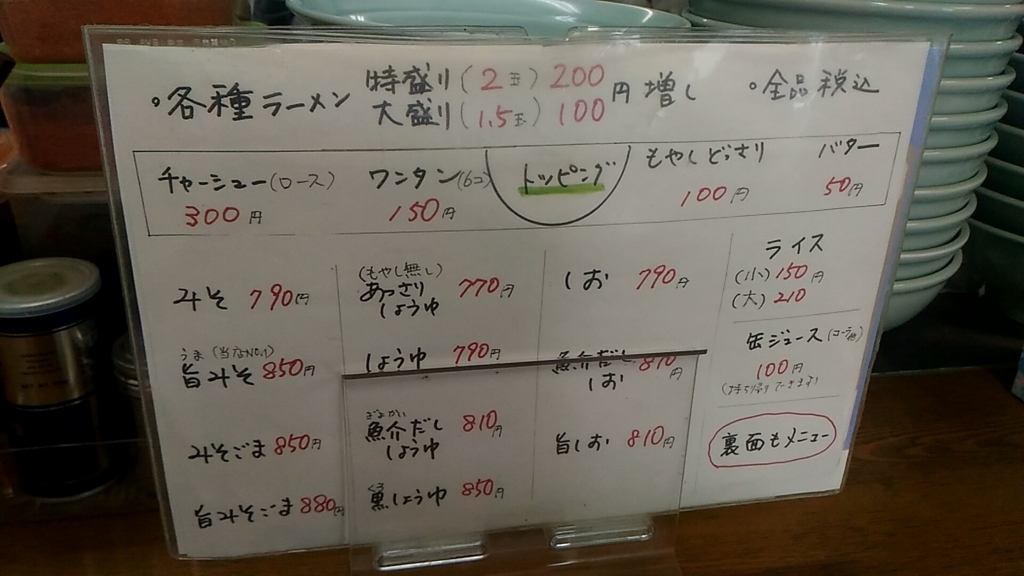 。各種ラーメン 特盛り(2玉) 200円増し 。全品税込
大盛り(1.5玉) 100
チャーシュー(ロース) 300円
ワンタン(6コ) 150円
トッピング
もやしどっさり 100円
バター 50円
みそ 790円
うま (当店No.1)
旨みそ 850円
みそごま 850円
旨みそごま 880円
(もやし無し)
あっさり 770円
しょうゆ
しょうゆ 790円
ぎょかい
魚介だし 810円
しょうゆ
しょうゆ 850円
しお 790円
魚介だし 810円
しお
旨しお 810円
ライス
(小) 150円
(大) 210
缶ジュース
100円
(持ち帰りできます)
裏面もメニュー